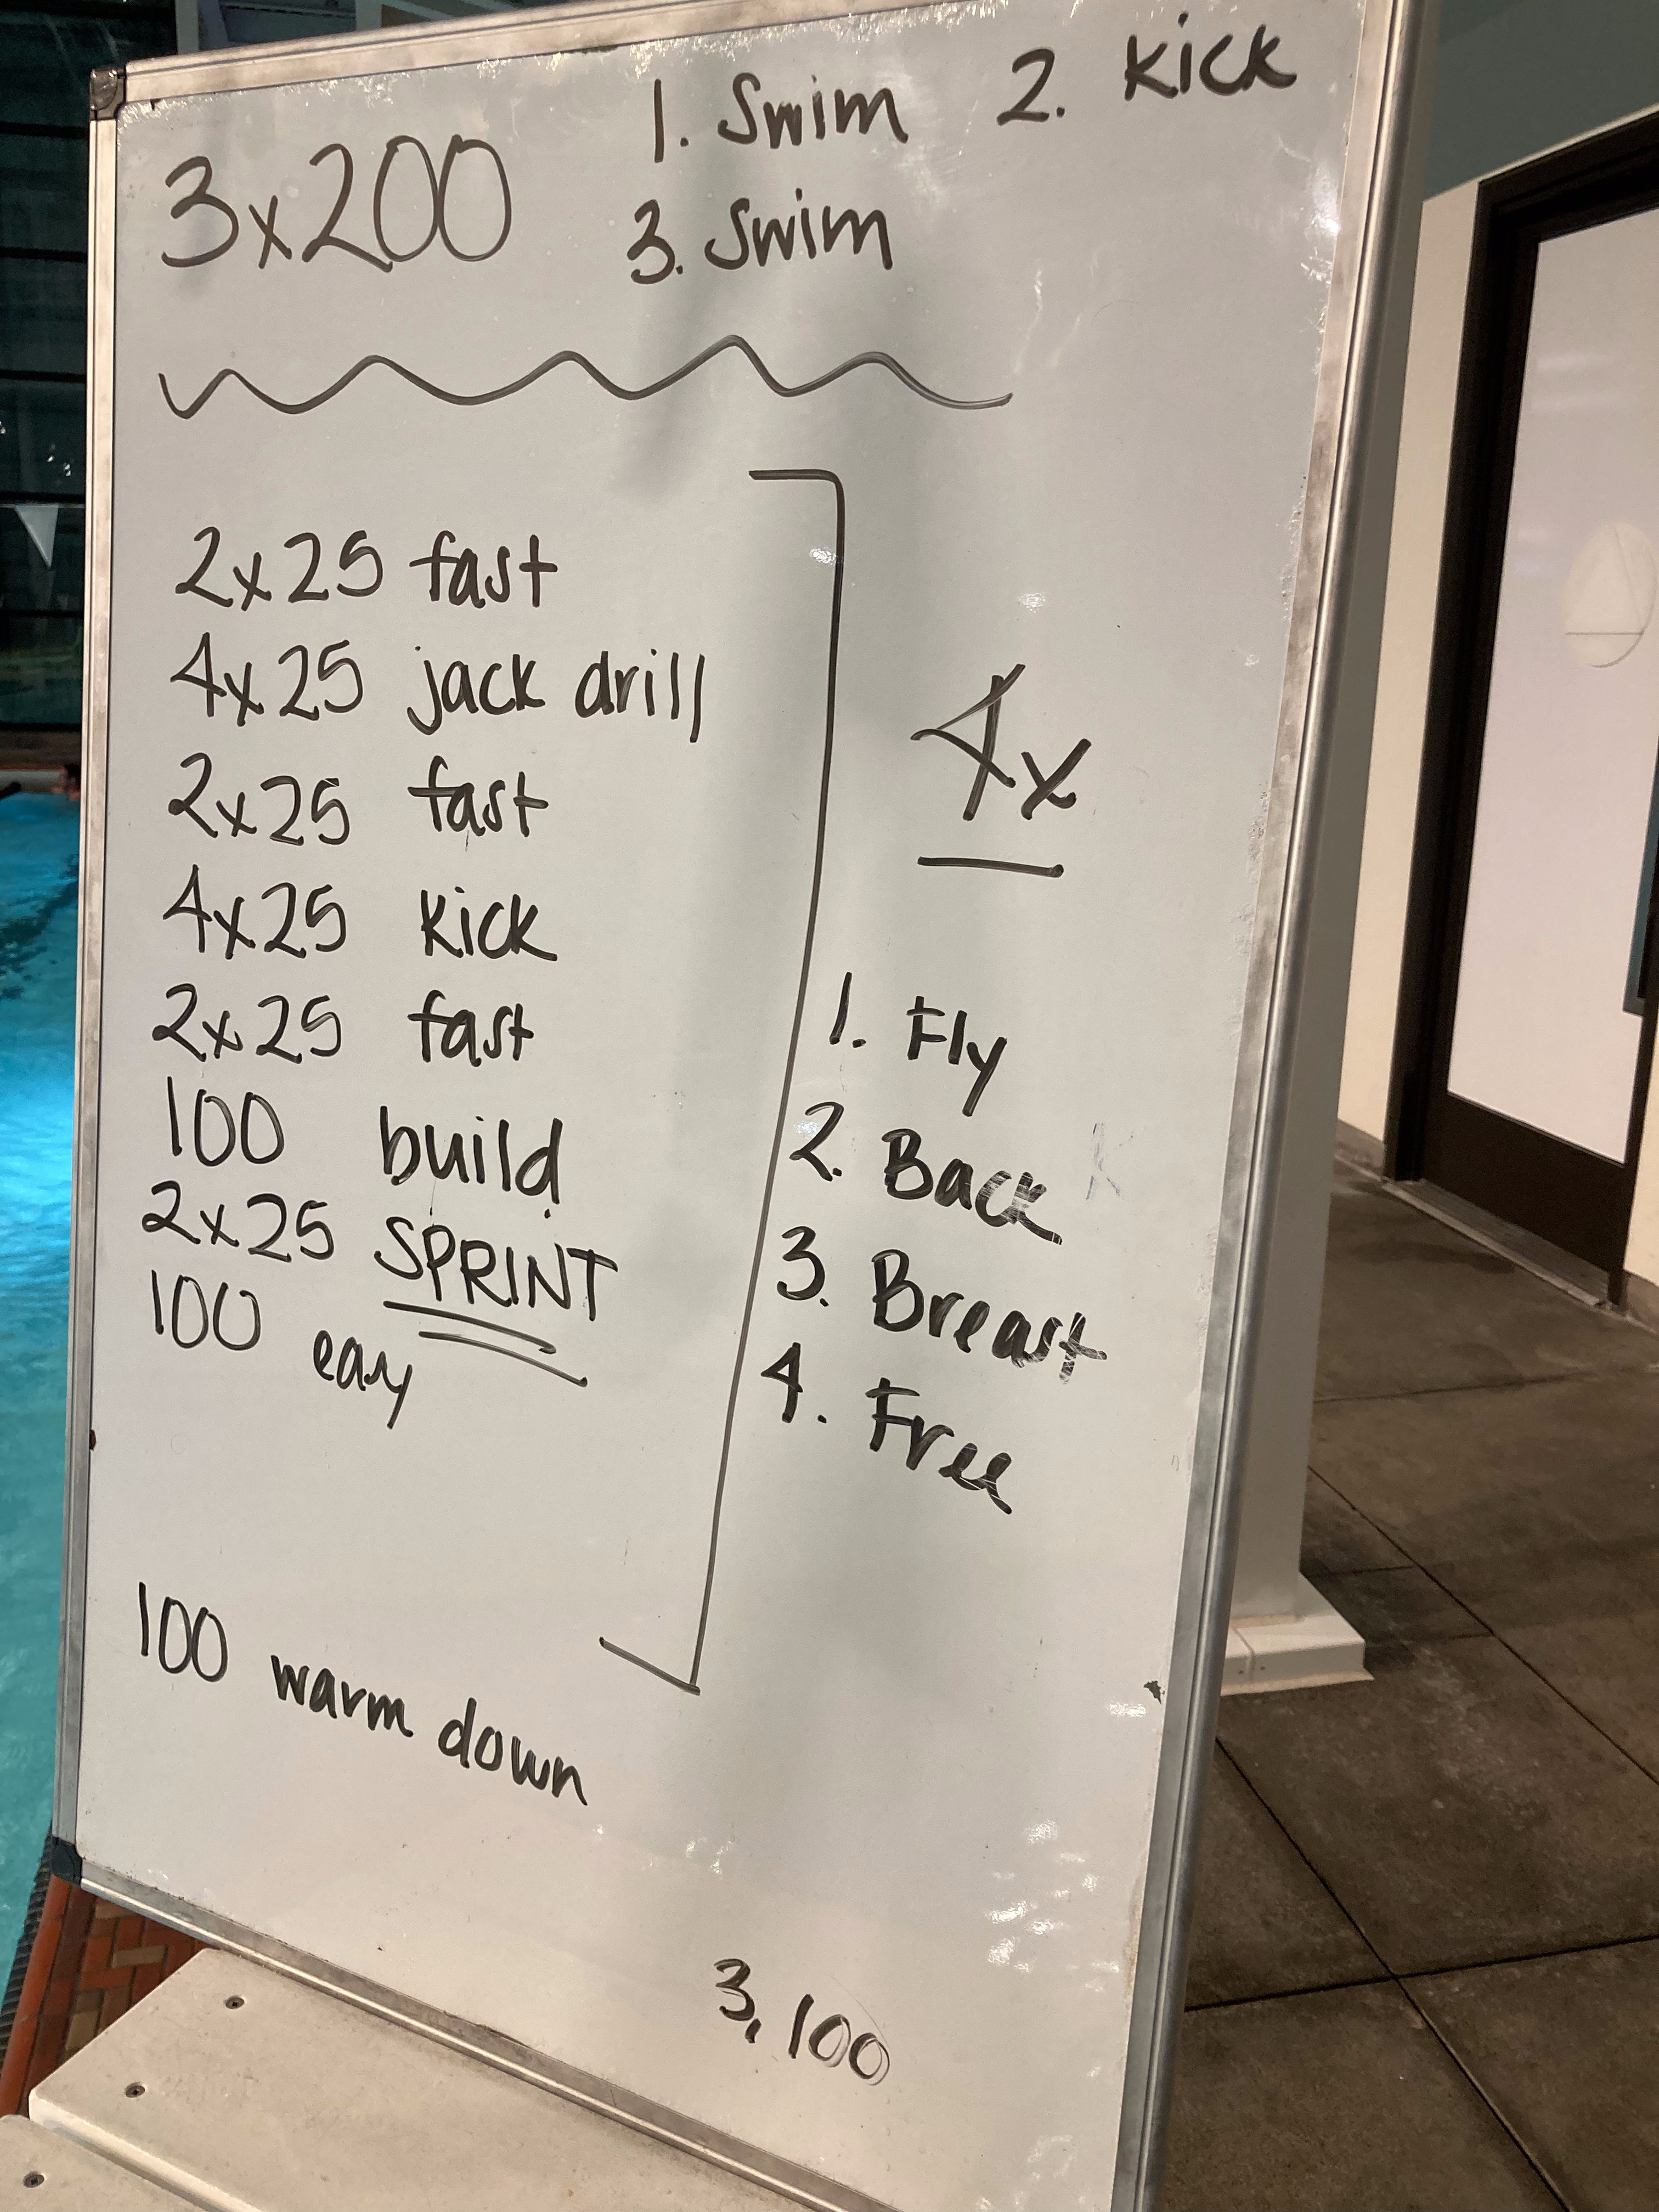 3x200 1. Swim 2. Kick
3. Swim
2x25 fast
4x25 jack drill
2x25 fast
4x25 kick
2x25 fast
100 build
2x25 SPRINT
100 easy
4x
1. Fly
2. Back
3. Breast
4. Free
100 warm down
3,100